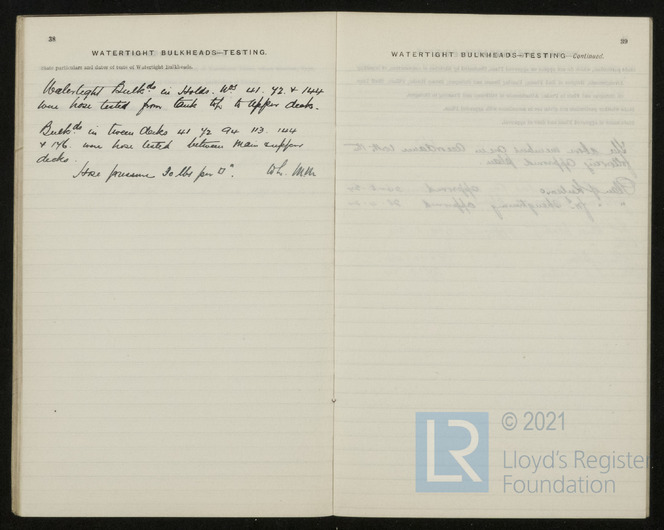 38
WATERTIGHT BULKHEADS—TESTING.
State particulars and dates of tests of Watertight Bulkheads.
Watertight Bulkds in Holds. Nos 41. 72. & 144
were hose tested from tank top to upper decks.
Bulkds in tween decks 41 72 94 113. 144
& 176. were hose tested between main & upper
decks.
Hose pressure 30 lbs per □".
39
WATERTIGHT BULKHEADS—TESTING Continued.
LR
© 2021
Lloyd's Register
Foundation